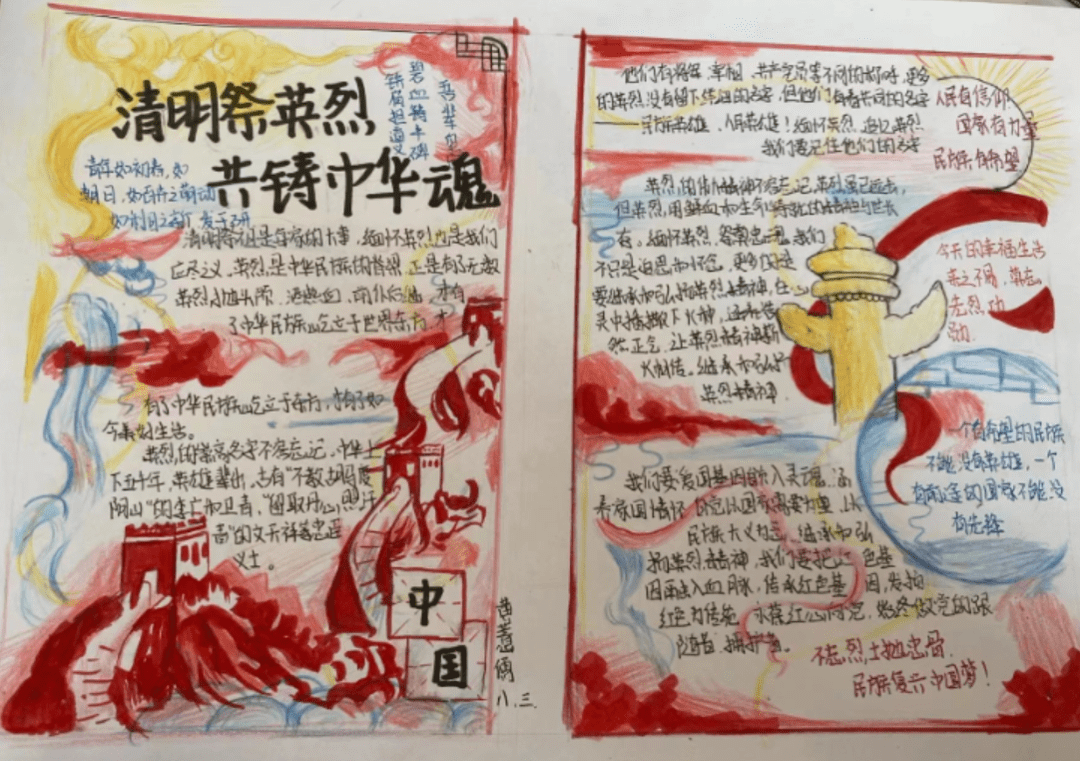 清明祭英烈
共铸中华魂
碧血铸丰碑
铁肩担道义
吾辈自
青年如初春，如
朝日，如百卉之萌动
如利刃之新发于硎
清明祭祖是每家的大事，缅怀英烈也是我们
应尽义，英烈是中华民族的脊梁，正是有了无数
英烈抛头颅，洒热血，前仆后继，才有
了中华民族屹立于世界东方，才
有了中华民族屹立于东方，才有了如
今美好生活。
英烈的崇高名字不容忘记，中华上
下五千年，英雄辈出，古有“不教胡马度
阴山”的李广和卫青，“留取丹心照汗
青”的文天祥等忠臣
义士。
中
国
八.三.
他们有将军，宰相，共产党员等不同的称呼，更多
的英烈没有留下传世的名字，但他们有着共同的名字
——民族英雄，人民英雄！缅怀英烈，追忆英烈
我们要记住他们的名字
人民有信仰
国家有力量
民族有希望
英烈的伟大精神不容忘记，英烈虽已远去，
但英烈用鲜血和生命铸就的精神与世长
存。缅怀英烈，祭奠忠魂，我们
不只是追思和怀念，更多的是
要继承和弘扬英烈精神，在心
灵中播撒下火种，涵养浩
然正气，让英烈精神薪
火相传。继承和弘扬
英烈精神
今天的幸福生活
来之不易，靠的
先烈功
勋
一个有希望的民族
不能没有英雄，一个
有前途的国家不能没
有先锋
我们要爱国基因融入灵魂，涵
养家国情怀，自觉以国家需要为重，以
民族大义为己，继承和弘
扬英烈精神，我们要把红色基
因融入血脉，传承红色基因，发扬
红色力传统，永葆红心向党，始终做党的跟
随者，拥护者。
不忘烈士抛忠骨
民族复兴中国梦！